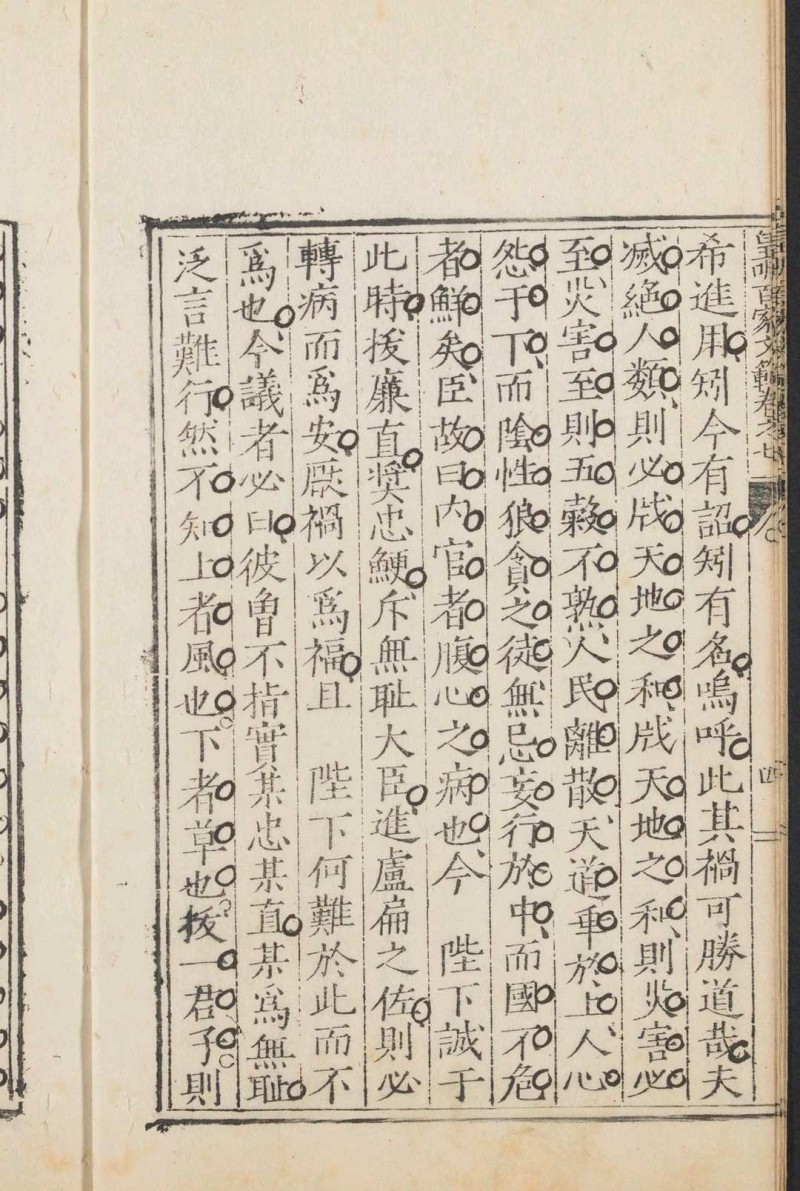 皇明百家文範卷之七
四
希進用矧今有詔矧有名嗚呼此其禍可勝道哉夫
滅絕人類則必戕天地之和戕天地之和則災害必
至災害至則五穀不熟人民離散天道乖於上人心
怨于下而陰性狼貪之徒無忌妄行於中而國不危
者鮮矣臣故曰內官者腹心之病也今 陛下誠于
此時拔廉直奨忠鯁斥無恥大臣進盧扁之佐則必
轉病而為安厭禍以為福且 陛下何難於此而不
爲也今議者必曰彼曾不指實某忠某直某為無恥
泛言難行然不知上者風也下者草也拔一君子則